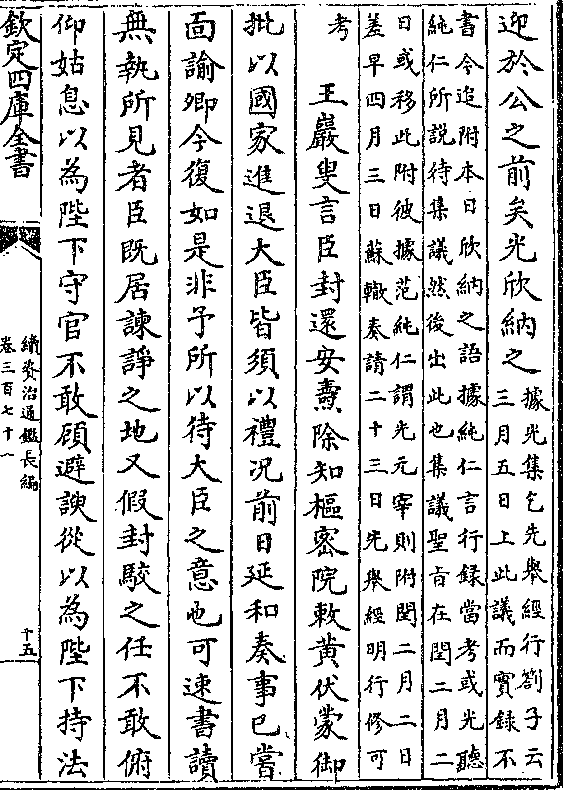 迎於公之前矣光欣納之據光集乞先舉經行劄子云
三月五日上此議而實録不
書今追附本日欣納之語據純仁言行録當考或光聽
純仁所説待集議然後出此也集議聖旨在閏二月二
日或移此附彼據范純仁謂光元宰則附閏二月二日
差早四月三日蘇轍奏請二十三日先舉經明行修可
考
王巖叟言臣封還安燾除知樞密院敕黄伏蒙御
批以國家進退大臣皆須以禮況前日延和奏事已嘗
面諭卿今復如是非予所以待大臣之意也可速書讀
無執所見者臣既居諫諍之地又假封駮之任不敢俯
仰姑息以為陛下守官不敢顧避諛從以為陛下持法
欽定四庫全書
續資治通鑑長編
卷三百七十八
十五